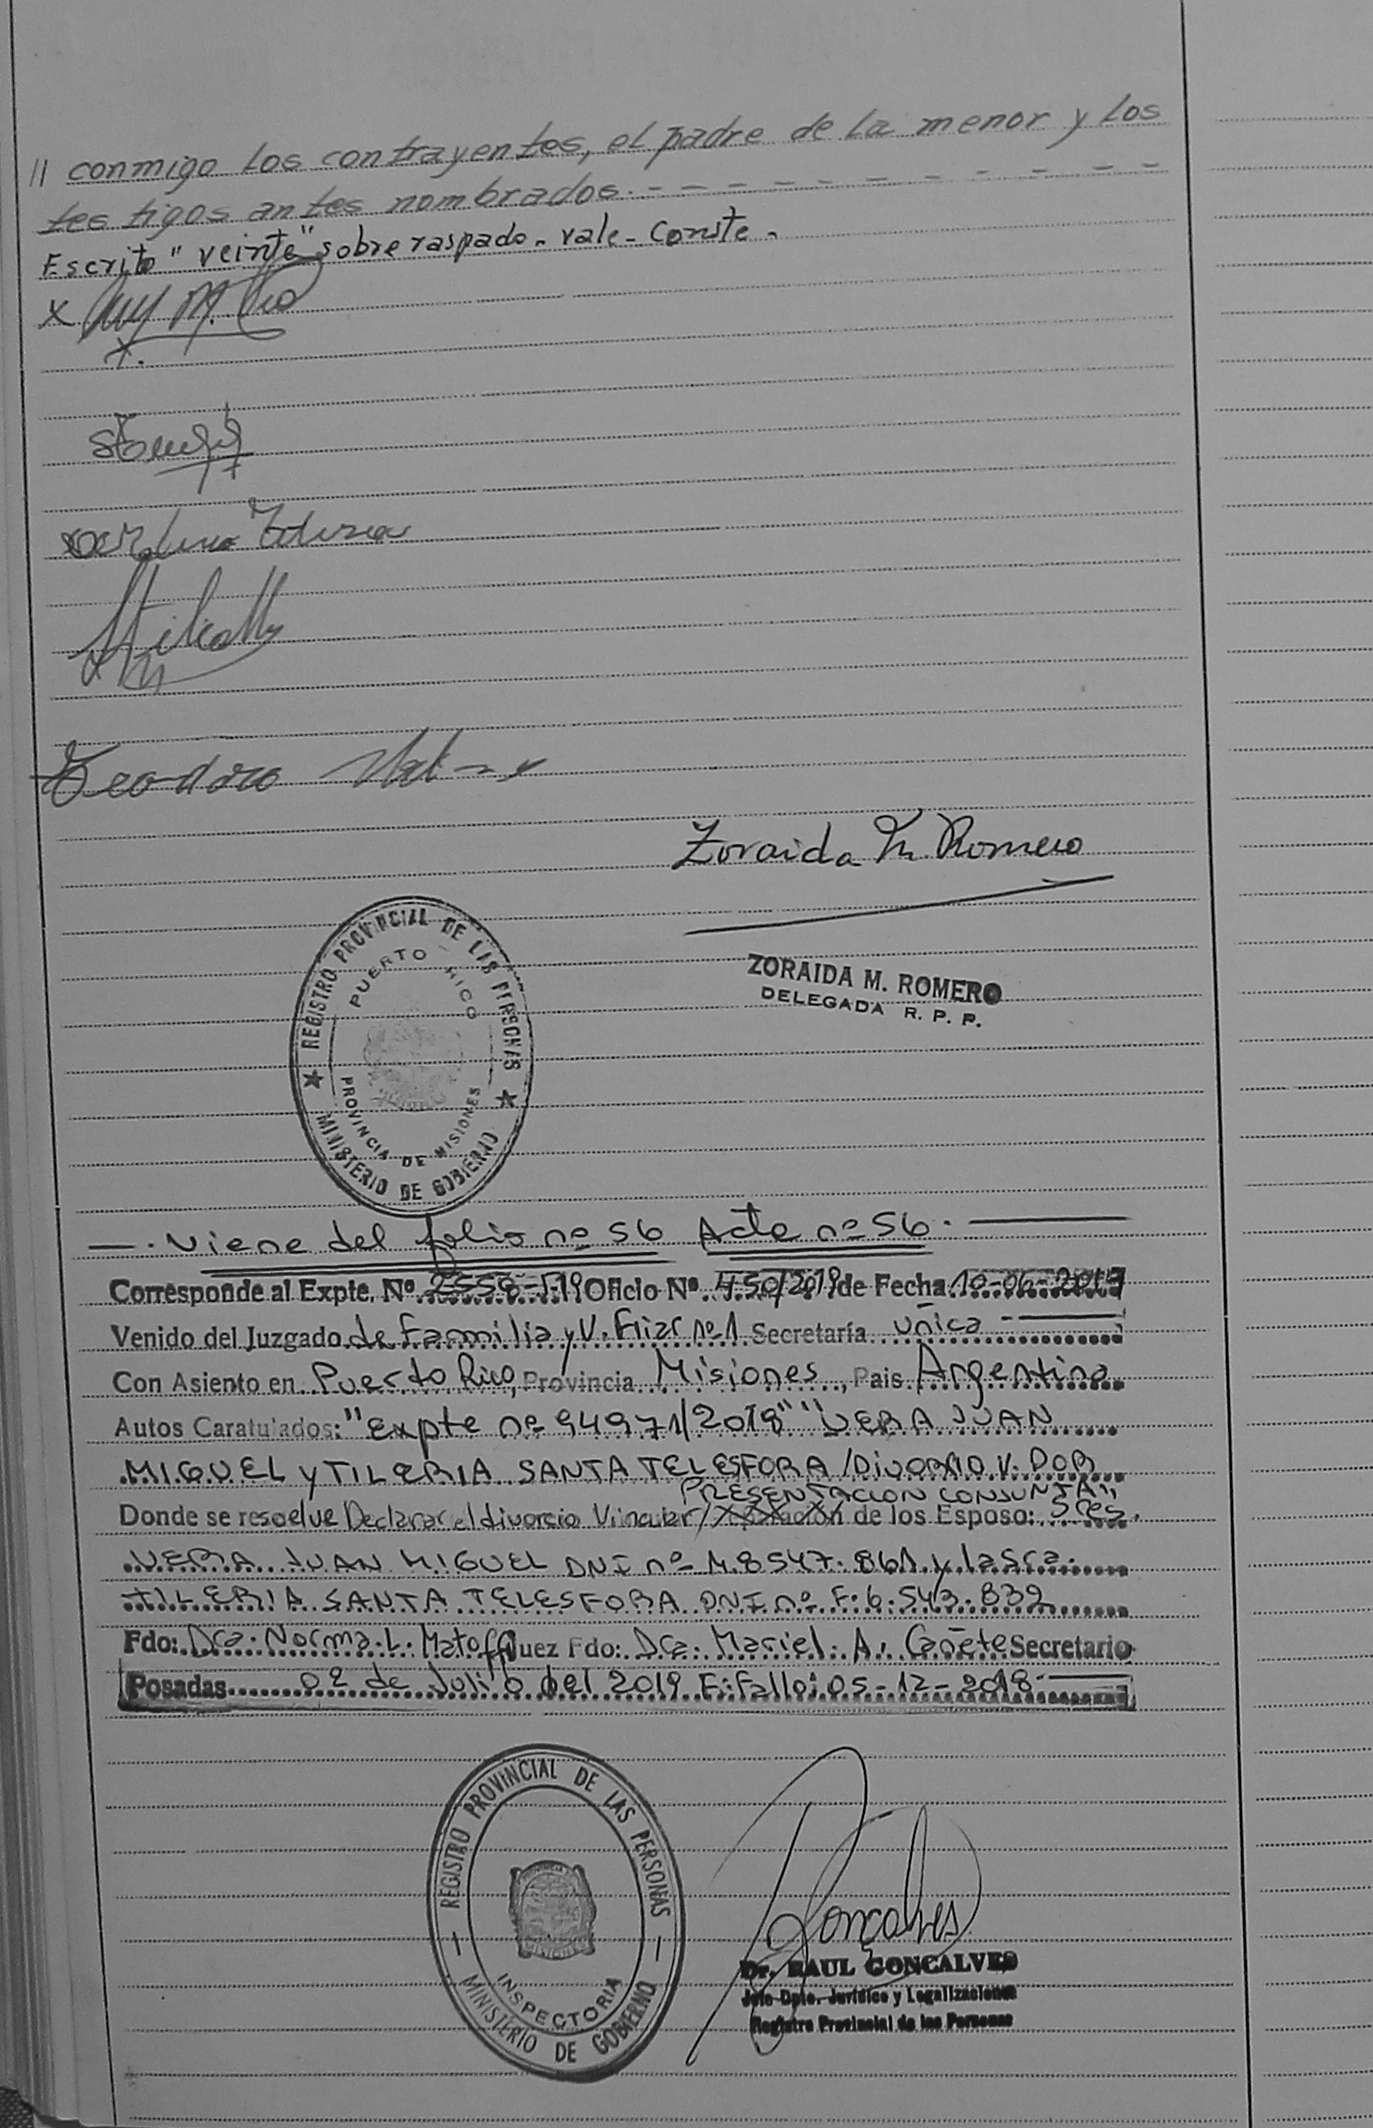 // conmigo los contrayentes, el padre de la menor y los
testigos antes nombrados.- - - - - - - - - - - -
Escrito "veinte" sobre raspado. Vale. Conste.
X
Teodoro
Zoraida M. Romero
ZORAIDA M. ROMERO
DELEGADA R. P. P.
★ REGISTRO PROVINCIAL DE LAS PERSONAS ★
MINISTERIO DE GOBIERNO
PUERTO RICO
PROVINCIA DE MISIONES
—. Viene del folio nº 56 Acta nº 56. —
Corresponde al Expte. Nº 2558-T-19 Oficio Nº 450/2019 de Fecha 10-06-2019
Venido del Juzgado de Familia y V. Fliar nº 1 Secretaría única
Con Asiento en Puerto Rico, Provincia Misiones, Pais Argentina
Autos Caratulados: "Expte nº 94971/2018" "VERA JUAN
MIGUEL y TILERIA SANTA TELESFORA /DIVORCIO V. POR
PRESENTACION CONJUNTA"
Donde se resuelve Declarar el divorcio Vincular de los Esposo: Sres.
VERA JUAN MIGUEL DNI nº M. 8547.861 y la Sra.
TILERIA SANTA TELESFORA DNI nº F: 6.543.832
Fdo: Dra. Norma L. Matoff Juez Fdo: Dra. Mariel A. Cañete Secretario
Posadas 02 de Julio del 2019 F: Fallo: 05-12-2018
REGISTRO PROVINCIAL DE LAS PERSONAS
MINISTERIO DE GOBIERNO
INSPECTORIA
MISIONES
Goncalves
Dr. RAUL GONCALVES
Jefe Dpto. Jurídico y Legalizaciones
Registro Provincial de las Personas